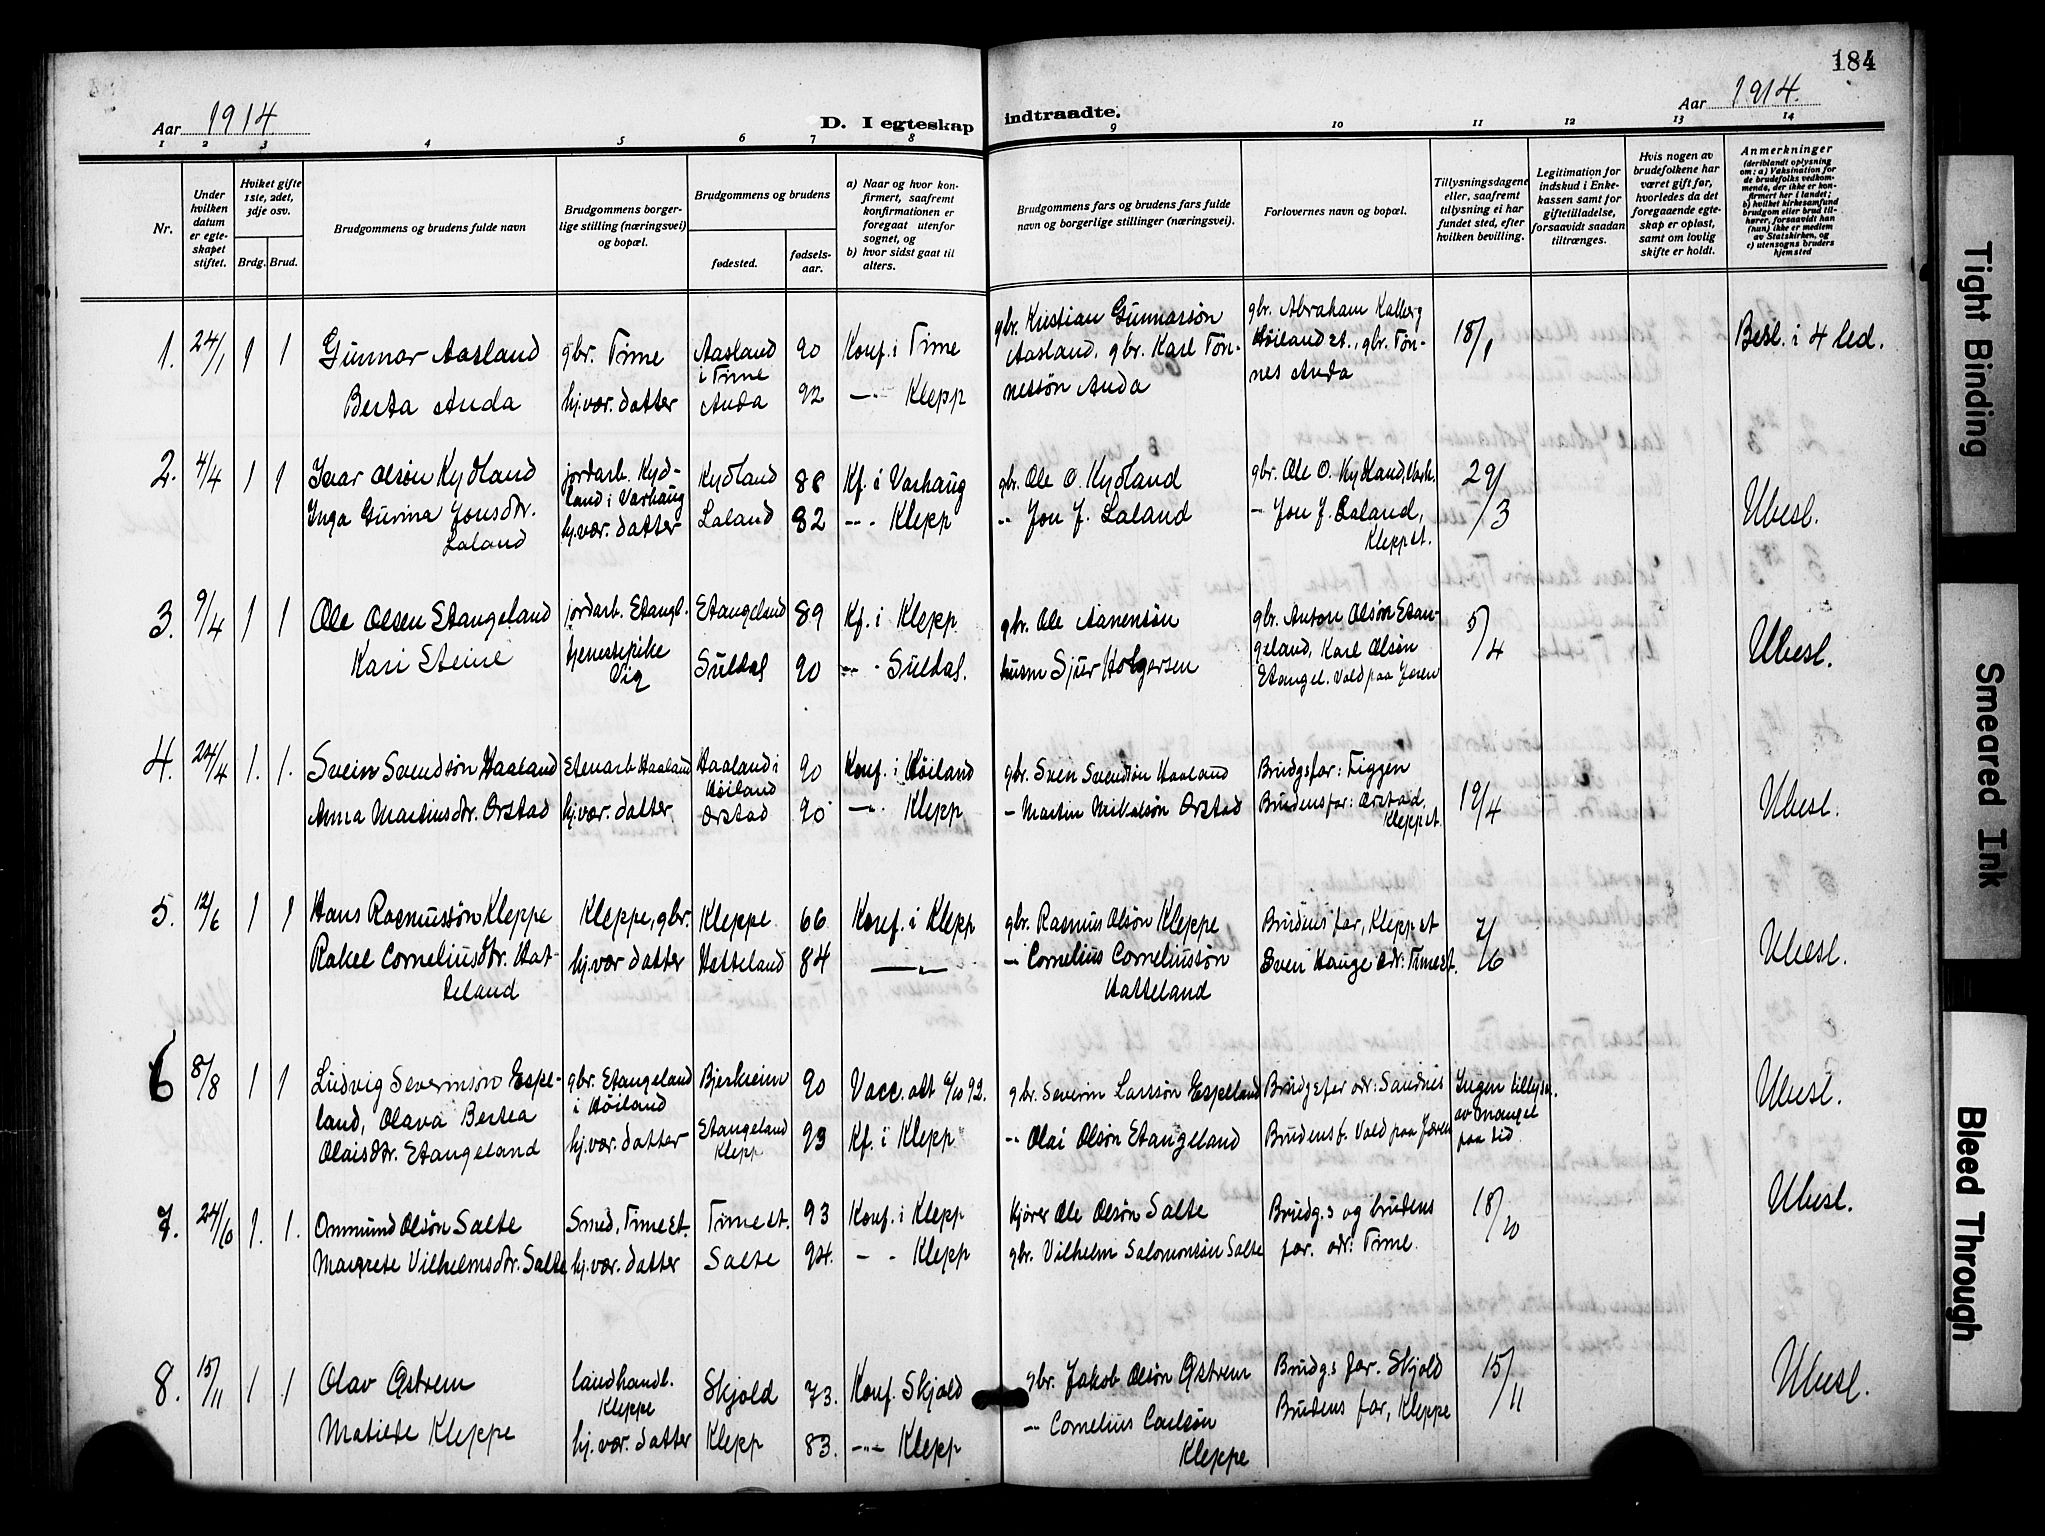 184
Aar 1914
D. I egteskap indtraadte.
Aar 1914.
1 2 3 4 5 6 7 8 9 10 11 12 13 14
Nr.
Under hvilken datum er egteskapet stiftet.
Hviket gifte 1ste, 2det, 3dje osv.
Brdg. Brud.
Brudgommens og brudens fulde navn
Brudgommens borgerlige stilling (næringsvei) og bopæl.
Brudgommens og brudens
fødested.
fødselsaar.
a) Naar og hvor konfirmert, saafremt konfirmationen er foregaat utenfor sognet, og
b) hvor sidst gaat til alters.
Brudgommens fars og brudens fars fulde navn og borgerlige stillinger (næringsvei).
Forlovernes navn og bopæl.
Tillysningsdagene eller, saafremt tillysning ei har fundet sted, efter hvilken bevilling.
Legitimation for indskud i Enkekassen samt for giftetilladelse, forsaavidt saadan tiltrænges.
Hvis nogen av brudefolkene har været gift før, hvorledes da det foregaaende egteskap er opløst, samt om lovlig skifte er holdt.
Anmerkninger
(deriblandt oplysning om: a) Vaksination for de brudefolks vedkommende, der ikke er konfirmert her i landet; b) hvilket kirkesamfund brudgom eller brud tilhører, forsaavidt han (hun) ikke er medlem av Statskirken, og c) utensogns bruders hjemsted
1. 24/1 1 1 Gunnar Aasland gbr. Time Aasland i Time 90 Konf. i Time gbr. Kristian Gunnarsön Aasland, gbr. Karl Tönnessön Anda gbr. Abraham Kalberg Höiland st., gbr. Tönnes Anda 18/1 Besl. i 4 led.
Berta Anda hj.vær. datter Anda 92 —"— Klepp
2. 4/4 1 1 Ivar Olsön Kydland jordarb. Kydland i Varhaug Kydland 88 Kf. i Varhaug gbr. Ole O. Kydland gbr. Ole O. Kydland, Varh. 29/3 Ubesl.
Inga Gurina Jonsdtr. Laland hj.vær. datter Laland 82 -"- Klepp -"- Jon J. Laland - Jon J. Laland, Klepp st.
3. 9/4 1 1 Ole Olsen Stangeland jordarb. Stangl. Stangeland 89 Kf. i Klepp gbr. Ole Aanensön gbr. Anton Olsön Stangeland, Karl Olsön Stangel. Vold paa Jæren 5/4 Ubesl.
Kari Steine tjenestepike Vig Suldal 90 -"- Suldal. husm Sjur Holgersen
4. 24/4 1. 1. Svein Svendsön Haaland Stenarb Haaland Haaland i Höiland 90 Konf. i Höiland gbr. Sven Svendsön Haaland Brudgsfar: Figgen 19/4 Ubesl.
Anna Martinsdtr. Orstad hj.vær. datter Orstad 90 —"— Klepp - Martin Mikalsön Orstad Brudensfar: Orstad, Klepp st.
5. 12/6 1 1 Hans Rasmussön Kleppe Kleppe, gbr. Kleppe 66 Konf. i Klepp gbr. Rasmus Olsön Kleppe Brudens far, Klepp st 7/6 Ubesl.
Rakel Corneliusdtr. Hatteland hj.vær datter Hatteland 84 —"— - Cornelius Corneliussön Hatteland Sven Hauge adr: Time st.
6 8/8 1 1 Ludvig Severinsön Espeland, Olava Bertea Olaisdtr. Stangeland gbr. Stangeland i Höiland Bjerkreim 90 Vacc. att 6/10 92. gbr. Severin Larssön Espeland Brudgsfar adr: Sandnes Ingen tillysn. av mangel paa tid Ubesl.
hj.vær. datter Stangeland Klepp 93 Kf. i Klepp -"- Olai Olsön Stangeland Brudens f. Vold paa Jæren
7. 24/10 1. 1. Ommund Olsön Salte Smed, Time st. Time st. 93 Konf. i Klepp Kjörer Ole Olsön Salte Brudg.s og brudens far. adr: Time. 18/10 Ubesl.
Margrete Vilhelmsdtr. Salte hj.vær. datter Salte 94. - - Klepp gbr. Vilhelm Salomonsön Salte
8. 15/11 1 1 Olav Østrem Landhandl. Kleppe Skjold 73. Konf. Skjold gbr. Jakob Olsön Østrem Brudg.s far. Skjold 15/11 Ubesl.
Matilde Kleppe hj.vær. datter Klepp 83. -"- Klepp - Cornelius Carlsön Kleppe Brudens far, Kleppe
Tight Binding
Smeared Ink
Bleed Through